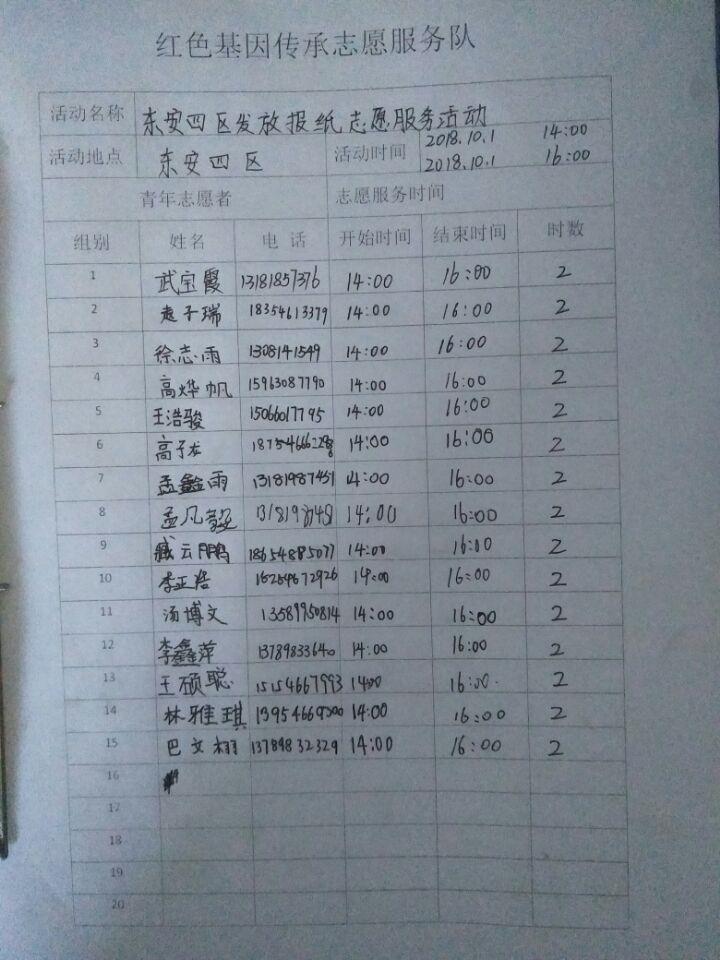 红色基因传承志愿服务队
活动名称 东安四区发放报纸志愿服务活动
活动地点 东安四区 活动时间 2018.10.1 14:00
2018.10.1 16:00
青年志愿者 志愿服务时间
组别 姓名 电话 开始时间 结束时间 时数
1 武宝霞 13181857376 14:00 16:00 2
2 袁子瑞 18354613379 14:00 16:00 2
3 徐志雨 1308141549 14:00 16:00 2
4 高烨帆 15963087790 14:00 16:00 2
5 王浩骏 15066017795 14:00 16:00 2
6 高子龙 14:00 16:00 2
7 孟鑫雨 13181987451 14:00 16:00 2
8 孟凡 14:00 16:00 2
9 臧云鹏 18654885077 14:00 16:00 2
10 李正浩 15254672926 14:00 16:00 2
11 汤博文 13589950814 14:00 16:00 2
12 李鑫萍 13789833640 14:00 16:00 2
13 王硕聪 15154667993 14:00 16:00 2
14 林雅琪 14:00 16:00 2
15 巴文栩 13789832329 14:00 16:00 2
16
17
18
19
20